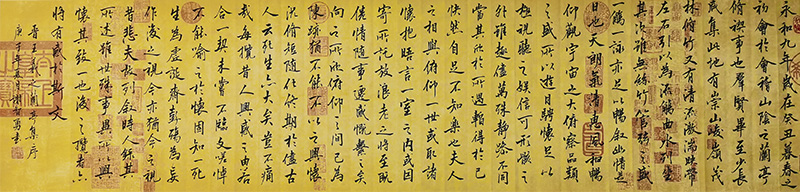 永和九年歲在癸丑暮春之
初會於會稽山陰之蘭亭
脩禊事也群賢畢至少長
咸集此地有崇山峻嶺茂
林脩竹又有清流激湍映帶
左右引以為流觴曲水列坐
其次雖無絲竹管絃之盛
一觴一詠亦足以暢敘幽情是
日也天朗氣清惠風和暢
仰觀宇宙之大俯察品類
之盛所以遊目騁懷足以
極視聽之娛信可樂也
外雖趣舍萬殊靜躁不同
當其欣於所遇暫得於己
快然自足不知樂也夫人
之相與俯仰一世或取諸
懷抱晤言一室之內或因
寄所託放浪老之將至既
倦情隨事遷感慨繫之矣
向之所欣俯仰之間已為
陳跡猶不能不以之興懷
況脩短隨化終期於盡古
人云死生亦大矣豈不痛
哉每攬昔人興感之由若
合一契未嘗不臨文嗟悼
不能喻之於懷固知一死
生為虛誕齊彭殤為妄
作後之視今亦猶今之視
昔悲夫故列敘時人錄其
所述雖世殊事異所以興
懷其致一也後之攬者亦
將有感於斯文
晉王羲之蘭亭集序